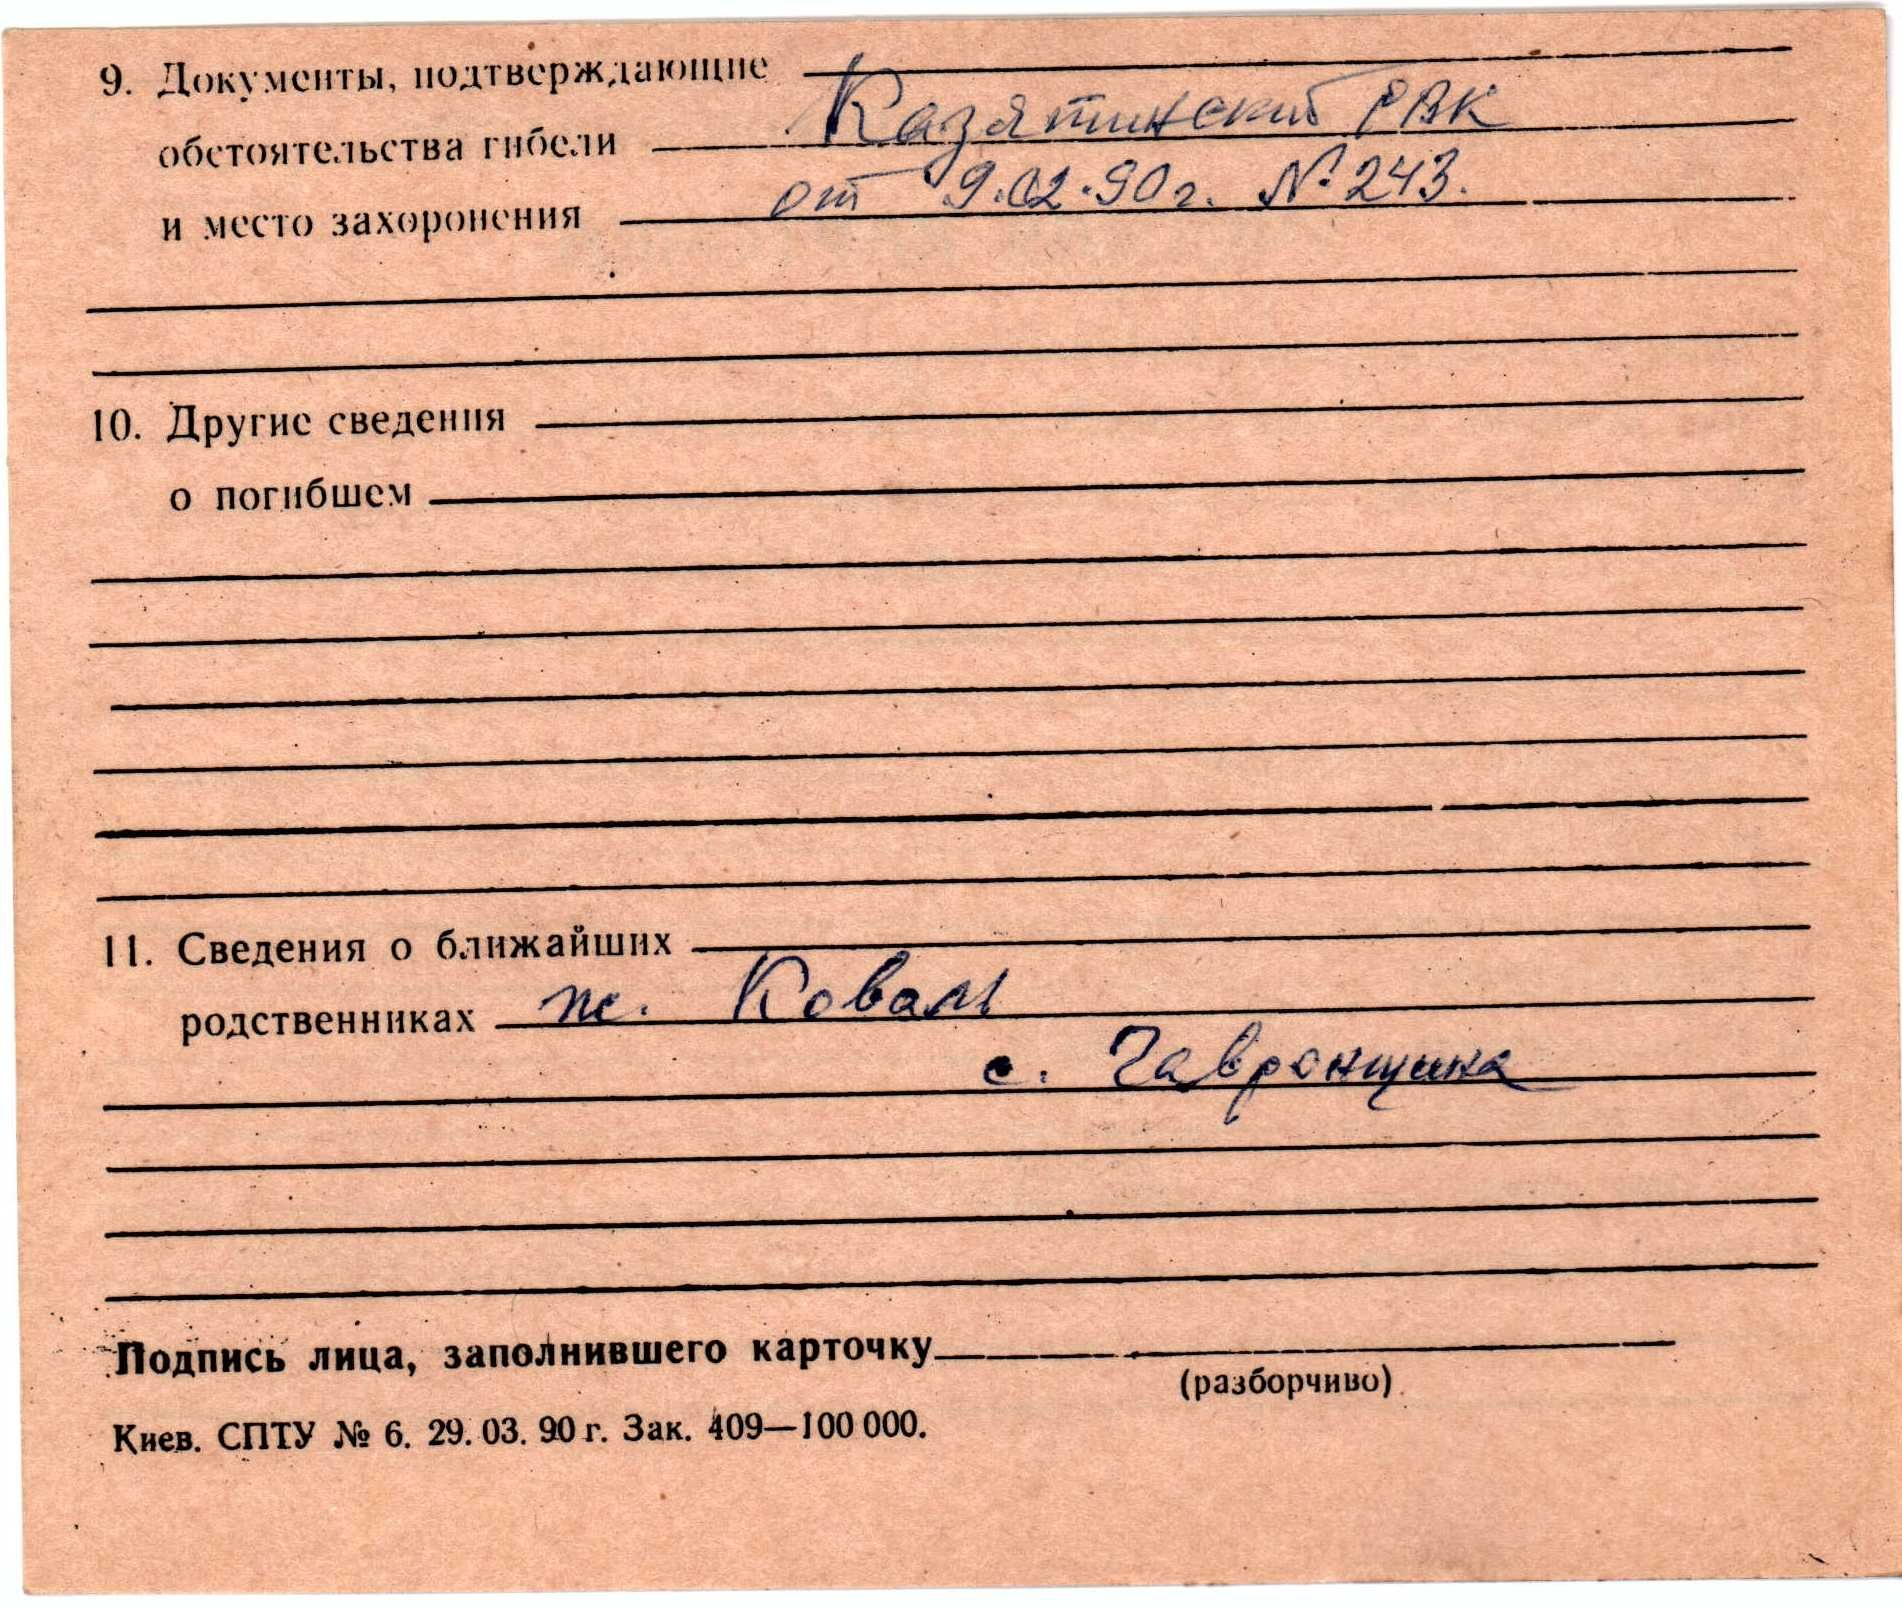 9. Документы, подтверждающие
Казятинский РВК
обстоятельства гибели
от 9.02.90г. № 243.
и место захоронения
10. Другие сведения
о погибшем
11. Сведения о ближайших
родственниках ж. Коваль
с. Гавронщина
Подпись лица, заполнившего карточку
(разборчиво)
Киев. СПТУ № 6. 29. 03. 90 г. Зак. 409—100 000.